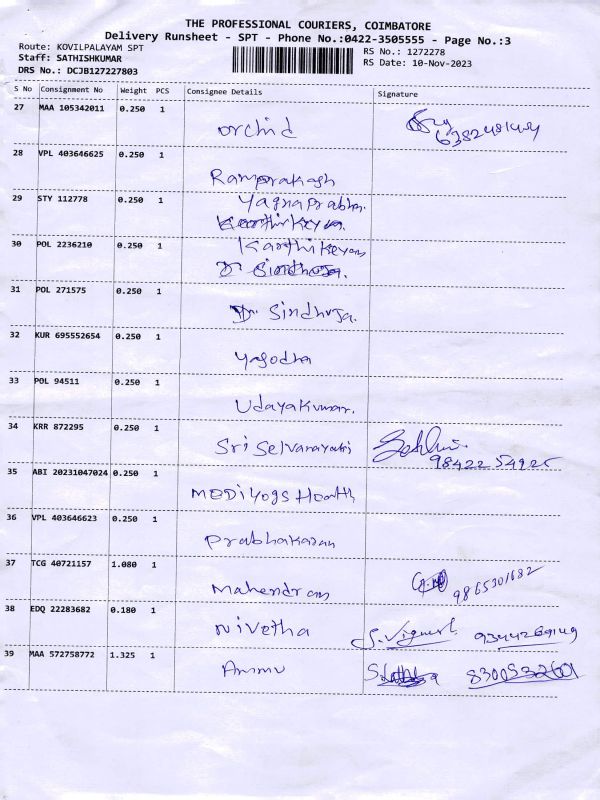 THE PROFESSIONAL COURIERS, COIMBATORE
Delivery Runsheet - SPT - Phone No.:0422-3505555 - Page No.:3
Route: KOVILPALAYAM SPT
RS No.: 1272278
Staff: SATHISHKUMAR
RS Date: 10-Nov-2023
DRS No.: DCJB127227803
S No Consignment No Weight PCS Consignee Details Signature
27 MAA 105342011 0.250 1
orchid
28 VPL 403646625 0.250 1
Ramprakash
29 STY 112778 0.250 1
Yagnaprabha.
Karthikeyan.
30 POL 2236210 0.250 1
Karthikeyan
Dr Sindhuja.
31 POL 271575 0.250 1
Dr. Sindhuja.
32 KUR 695552654 0.250 1
Yasodha
33 POL 94511 0.250 1
Udayakumar.
34 KRR 872295 0.250 1
Sri Selvanayaki
35 ABI 20231047024 0.250 1
MEDiyogs Health
36 VPL 403646623 0.250 1
Prabhakaran
37 TCG 40721157 1.080 1
Mahendran
9865301682
38 EDQ 22283682 0.180 1
Nivetha S. Vignesh
39 MAA 572758772 1.325 1
Ammu